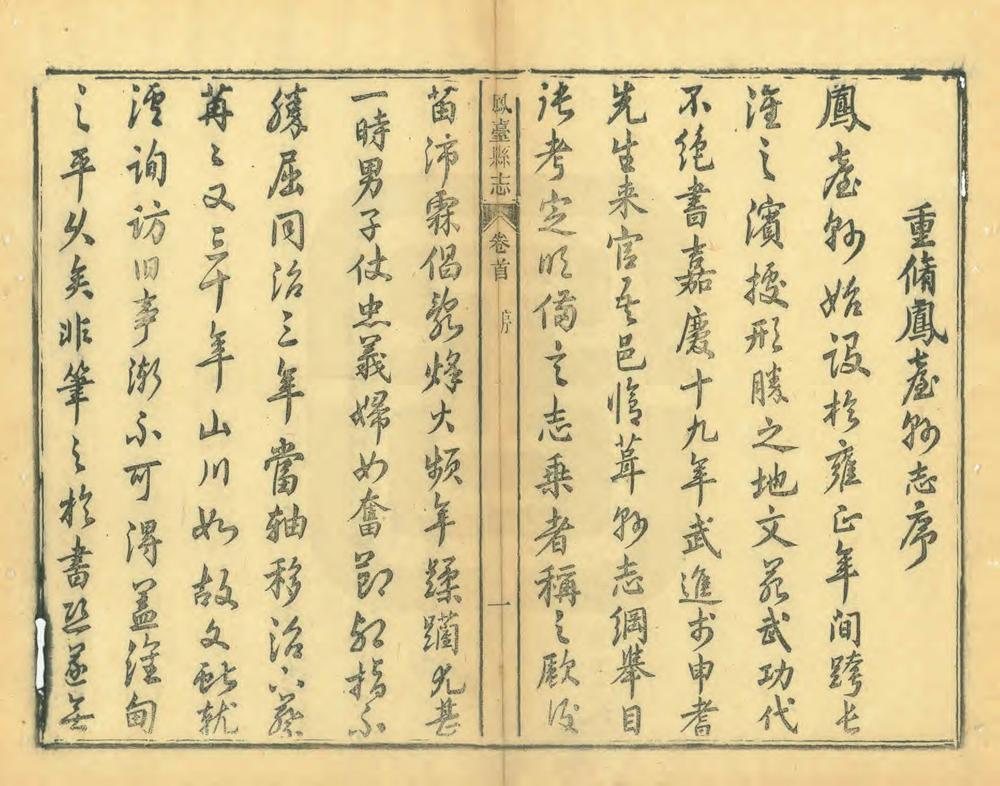 重脩鳳臺縣志序
鳳臺縣始設於雍正年間跨長
淮之濱據形勝之地文苑武功代
不絕書嘉慶十九年武進李申耆
先生来官是邑脩葺縣志綱舉目
張考定明備言志乘者稱之厥後
鳳臺縣志 卷首 序 一
苗沛霖倡亂烽火頻年蹂躪尤甚
一時男子仗忠義婦女奮節烈指不
勝屈同治三年當軸移治下蔡
苒〻又三十年山川如故文獻就
湮詢訪旧事漸不可得蓋淮甸
之平久矣非筆之於書恐遂無